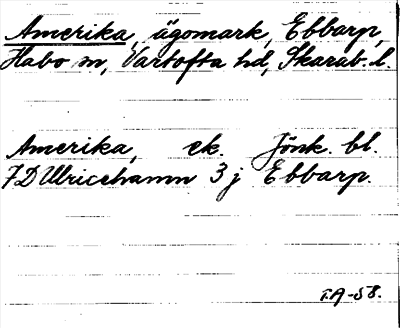 Amerika, ägomark, Ebbarp,
Habo sn, Vartofta hd, Skarab. l.
Amerika, ek. Jönk. bl.
7D Ulricehamn 3 j Ebbarp.
I.A-58.